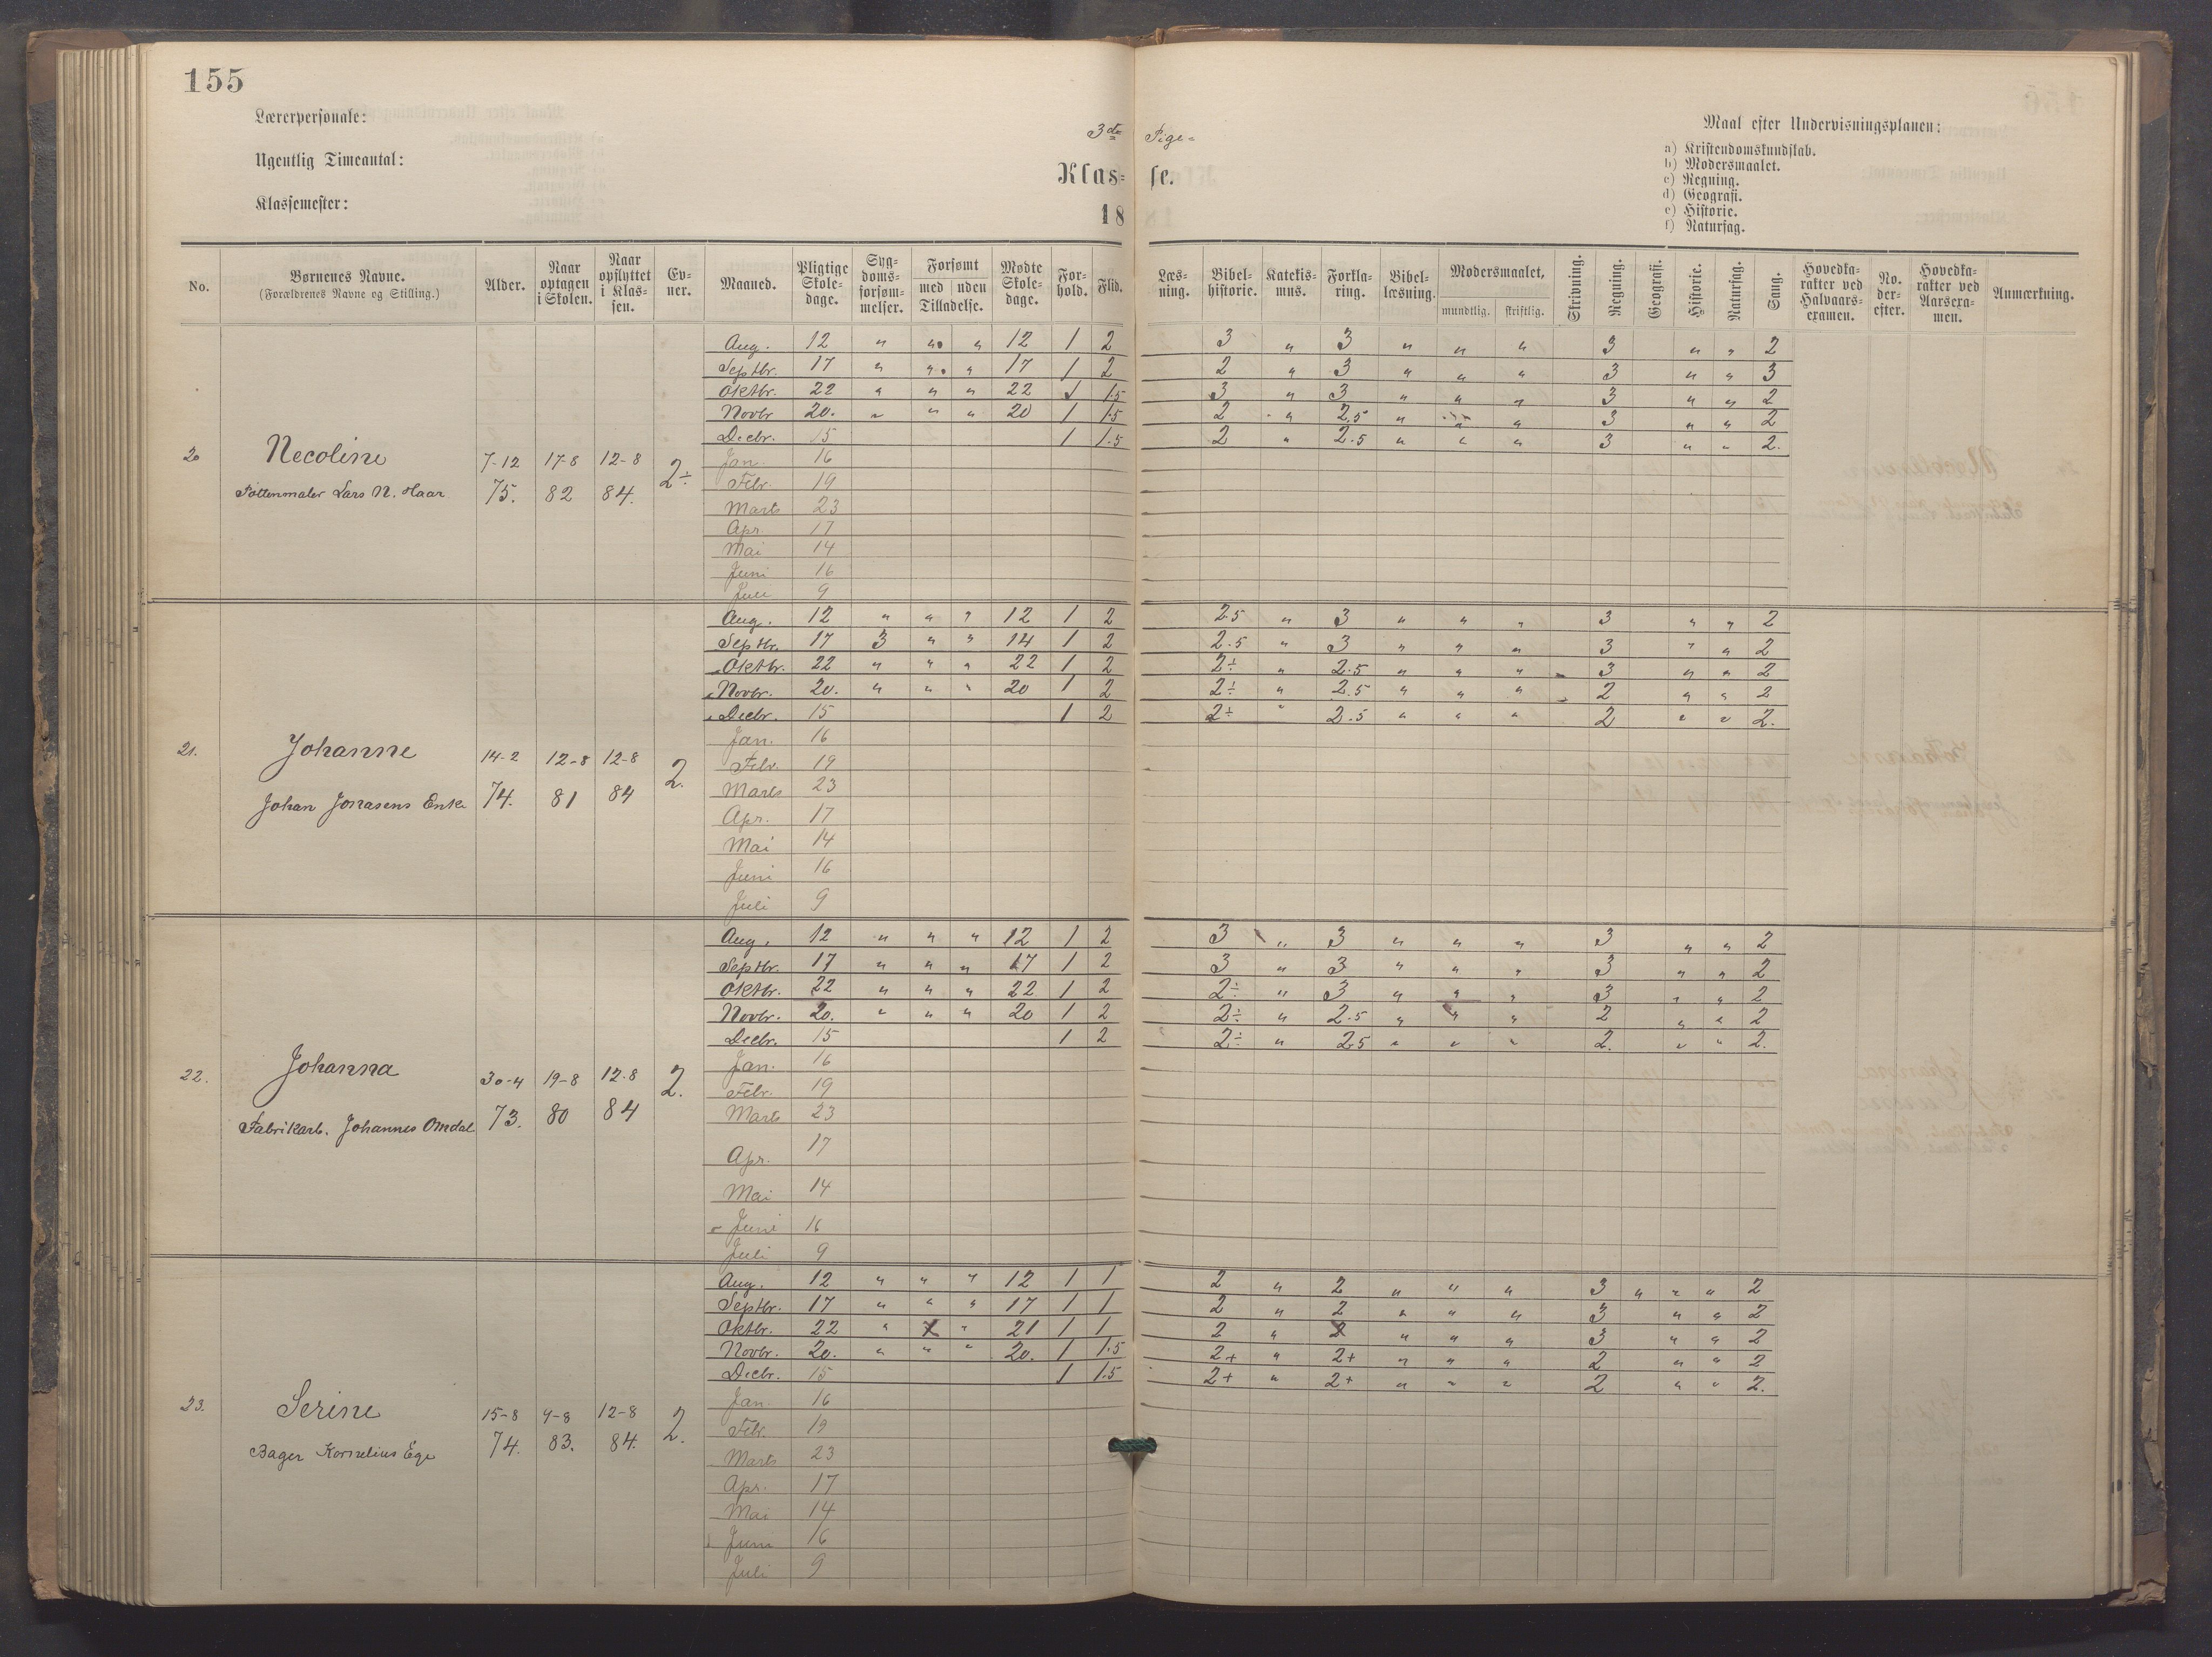 155
Lærerpersonale:
Ugentlig Timeantal:
Klassemester:
3die Pige-
Klas- se.
18
Maal efter Undervisningsplanen:
a) Kristendomskundskab.
b) Modersmaalet.
c) Regning.
d) Geografi.
e) Historie.
f) Naturfag.
No. | Børnenes Navne. (Forældrenes Navne og Stilling.) | Alder. | Naar optagen i Skolen. | Naar opflyttet i Klassen. | Evner. | Maaned. | Pligtige Skoledage. | Sygdomsforsømmelser. | Forsømt med uden Tilladelse. | Mødte Skoledage. | Forhold. | Flid. | Læsning. | Bibelhistorie. | Katekismus. | Forklaring. | Bibellæsning. | Modersmaalet, mundtlig. skriftlig. | Skrivning. | Regning. | Geografi. | Historie. | Naturfag. | Sang. | Hovedkarakter ved Halvaarsexamen. | No. derefter. | Hovedkarakter ved Aarsexamen. | Anmærkning.
Aug. 12 " " " 12 1 2 3 " 3 " " " 3 " " 2
Septbr. 17 " " " 17 1 2 2 " 3 " " " 3 " " 3
Oktbr. 22 " " " 22 1 1.5 3 " 3 " " " 3 " " 2
Novbr 20. " " " 20 1 1.5 2 " 2.5 " " " 3 " " 2
Decbr. 15 1 1.5 2 " 2.5 " " " 3 " " 2.
20 Necoline 7-12 17-8 12-8 2÷ Jan. 16
Pottenmaler Lars N. Haar 75. 82 84. Febr. 19
Marts 23
Apr. 17
Mai 14
Juni 16
Juli 9
Aug. 12 " " " 12 1 2 2.5 " 3 " " " 3 " " 2
Septbr. 17 3 " " 14 1 2 2.5 " 3 " " " 3 " " 2
Oktbr. 22 " " " 22 1 2 2÷ " 2.5 " " " 3 " " 2
Novbr. 20. " " " 20 1 2 2÷ " 2.5 " " " 2 " " 2
Decbr. 15 1 2 2÷ " 2.5 " " " 2 " " 2.
Jan. 16
21. Johanne 14-2 12-8 12-8 2. Febr. 19
Johan Jonasens Enke 74. 81 84 Marts 23
Apr. 17
Mai 14
Juni 16
Juli 9
Aug. 12 " " " 12 1 2 3 " 3 " " " 3 " " 2
Septbr. 17 " " " 17 1 2 3 " 3 " " " 3 " " 2
Oktbr. 22 " " " 22 1 2 2÷ " 3 " " " 3 " " 2
Novbr. 20. " " " 20 1 2 2÷ " 2.5 " " " 2 " " 2
Decbr. 15 1 2 2÷ " 2.5 " " " 2. " " 2.
Jan. 16
22. Johanna 30-4 19-8 12-8 2. Febr. 19
Fabrikarb. Johannes Omdal 73. 80 84 Marts 23
Apr. 17
Mai 14
Juni 16
Juli 9
Aug. 12 " " " 12 1 1 2 " 2 " " " 3 " " " 2
Septbr. 17 " " " 17 1 1 2 " 2 " " " 3 " " 2
Oktbr. 22 " 1 " 21 1 1 2 " 2 " " " 3 " " 2
Novbr. 20. " " " 20. 1 1.5 2+ " 2+ " " " 2 " " 2
Decbr. 15 1 1.5 2+ " 2+ " " " 2 " " 2.
Jan. 16
23. Serine 15-8 9-8 12-8 2. Febr. 19
Bager Kornelius Ege 74. 83. 84. Marts 23
Apr. 17
Mai 14
Juni 16
Juli 9